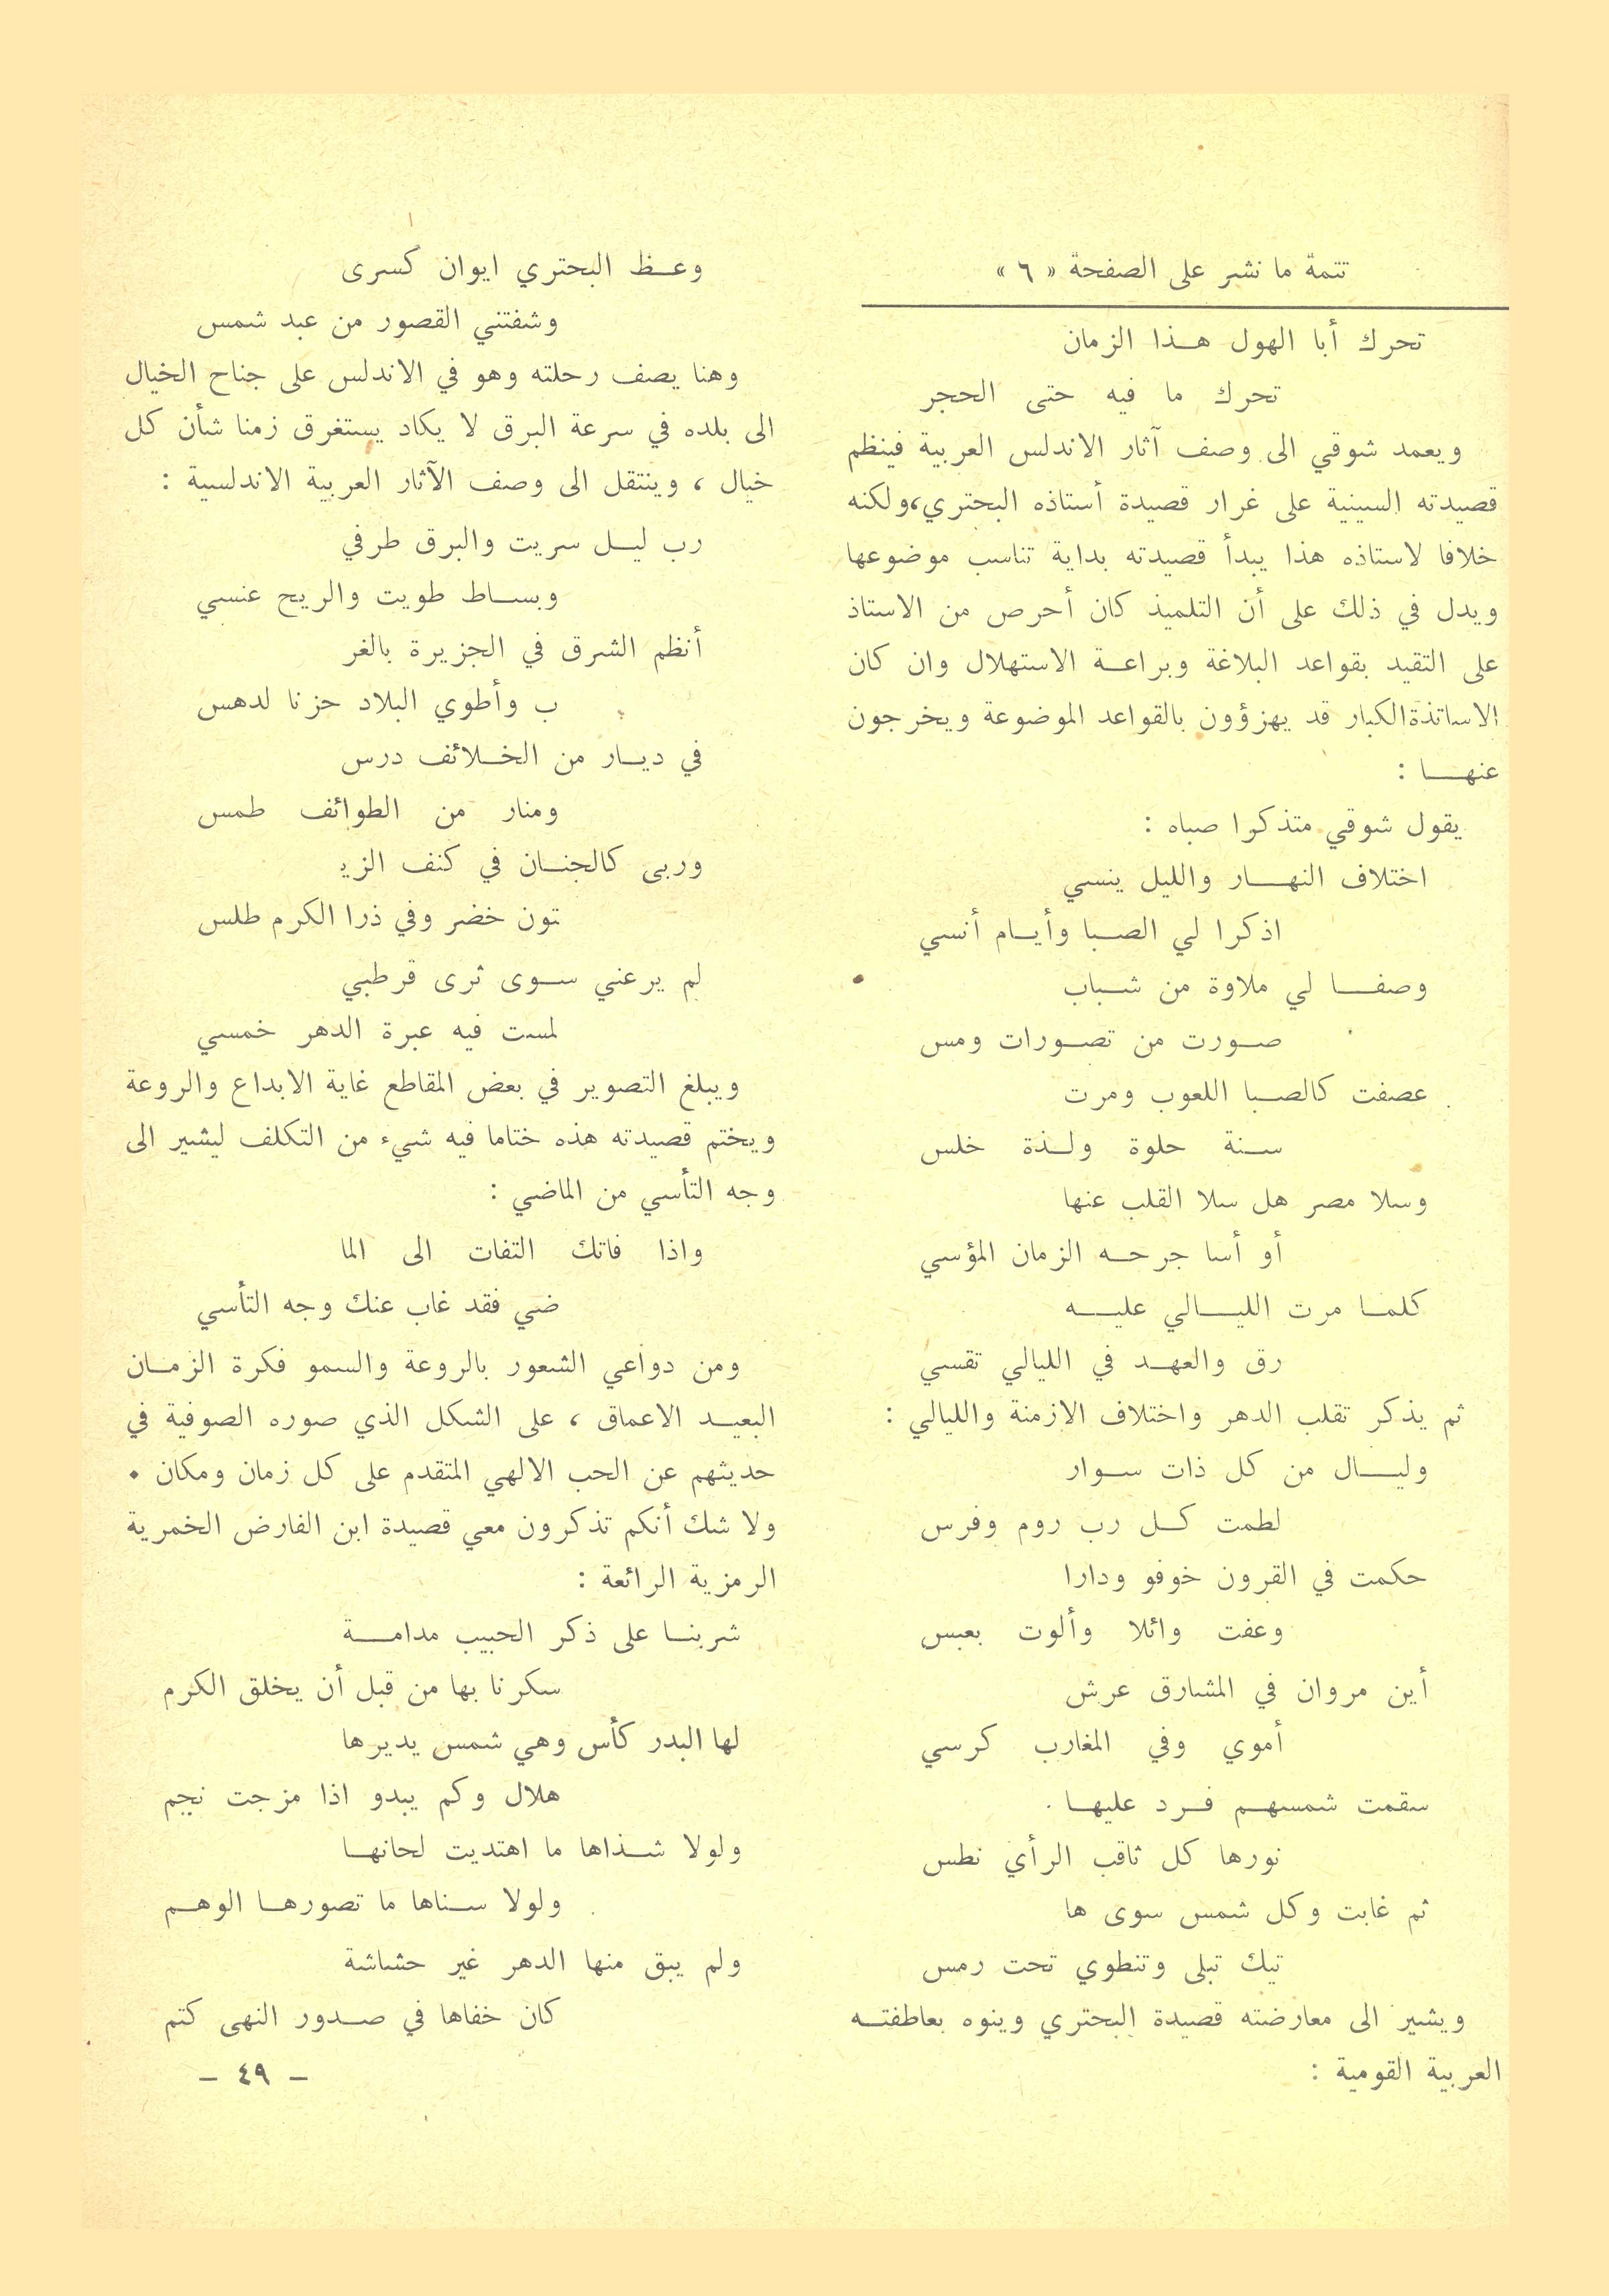 تتمة ما نشر على الصفحة « ٦ »
تحرك أبا الهول هذا الزمان
تحرك ما فيه حتى الحجر
ويعمد شوقي الى وصف آثار الاندلس العربية فينظم
قصيدته السينية على غرار قصيدة أستاذه البحتري،ولكنه
خلافا لاستاذه هذا يبدأ قصيدته بداية تناسب موضوعها
ويدل في ذلك على أن التلميذ كان أحرص من الاستاذ
على التقيد بقواعد البلاغة وبراعة الاستهلال وان كان
الاساتذة الكبار قد يهزؤون بالقواعد الموضوعة ويخرجون
عنها :
يقول شوقي متذكرا صباه :
اختلاف النهار والليل ينسي
اذكرا لي الصبا وأيام أنسي
وصفا لي ملاوة من شباب
صورت من تصورات ومس
عصفت كالصبا اللعوب ومرت
سنة حلوة ولذة خلس
وسلا مصر هل سلا القلب عنها
أو أسا جرحه الزمان المؤسي
كلما مرت الليالي عليه
رق والعهد في الليالي تقسي
ثم يذكر تقلب الدهر واختلاف الازمنة والليالي :
وليال من كل ذات سوار
لطمت كل رب روم وفرس
حكمت في القرون خوفو ودارا
وعفت وائلا وألوت بعبس
أين مروان في المشارق عرش
أموي وفي المغارب كرسي
سقمت شمسهم فرد عليها
نورها كل ثاقب الرأي نطس
ثم غابت وكل شمس سوى ها
تيك تبلى وتنطوي تحت رمس
ويشير الى معارضته قصيدة البحتري وينوه بعاطفته
العربية القومية :
وعظ البحتري ايوان كسرى
وشفتني القصور من عبد شمس
وهنا يصف رحلته وهو في الاندلس على جناح الخيال
الى بلده في سرعة البرق لا يكاد يستغرق زمنا شأن كل
خيال ، وينتقل الى وصف الآثار العربية الاندلسية :
رب ليل سريت والبرق طرفي
وبساط طويت والريح عنسي
أنظم الشرق في الجزيرة بالغر
ب وأطوي البلاد حزنا لدهس
في ديار من الخلائف درس
ومنار من الطوائف طمس
وربى كالجنان في كنف الزيـ
ـتون خضر وفي ذرا الكرم طلس
لم يرعني سوى ثرى قرطبي
لمست فيه عبرة الدهر خمسي
ويبلغ التصوير في بعض المقاطع غاية الابداع والروعة
ويختم قصيدته هذه ختاما فيه شيء من التكلف ليشير الى
وجه التأسي من الماضي :
واذا فاتك التفات الى الما
ضي فقد غاب عنك وجه التأسي
ومن دواعي الشعور بالروعة والسمو فكرة الزمان
البعيد الاعماق ، على الشكل الذي صوره الصوفية في
حديثهم عن الحب الالهي المتقدم على كل زمان ومكان •
ولا شك أنكم تذكرون معي قصيدة ابن الفارض الخمرية
الرمزية الرائعة :
شربنا على ذكر الحبيب مدامة
سكرنا بها من قبل أن يخلق الكرم
لها البدر كأس وهي شمس يديرها
هلال وكم يبدو اذا مزجت نجم
ولولا شذاها ما اهتديت لحانها
ولولا سناها ما تصورها الوهم
ولم يبق منها الدهر غير حشاشة
كان خفاها في صدور النهى كتم
– ٤٩ –